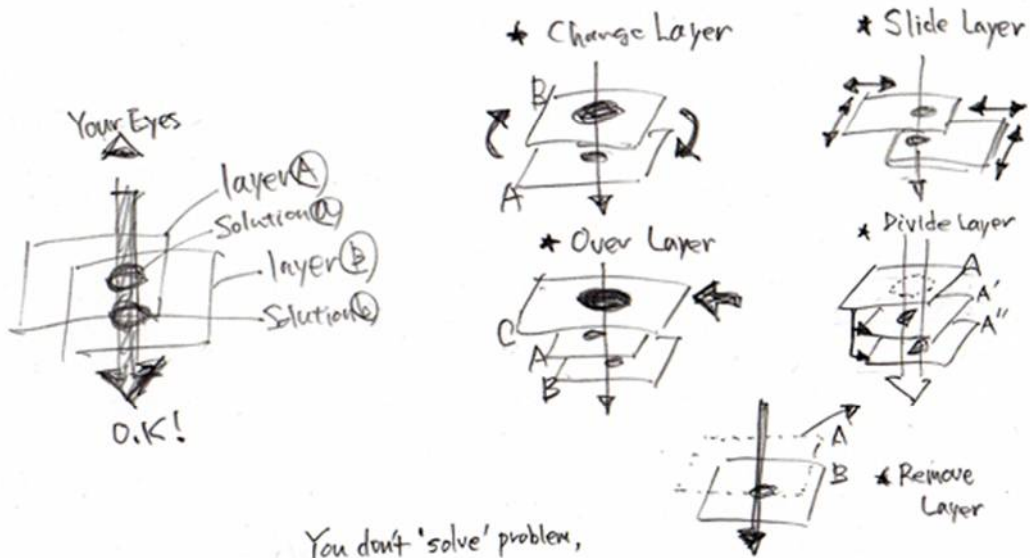 Your Eyes
layer Ⓐ
Solution ⓐ
layer Ⓑ
Solution ⓑ
O.K!
★ Change Layer
B
A
★ Slide Layer
★ Over Layer
C
A
B
★ Divide Layer
A
A'
A"
A
B
★ Remove
Layer
You don't 'solve' problem,